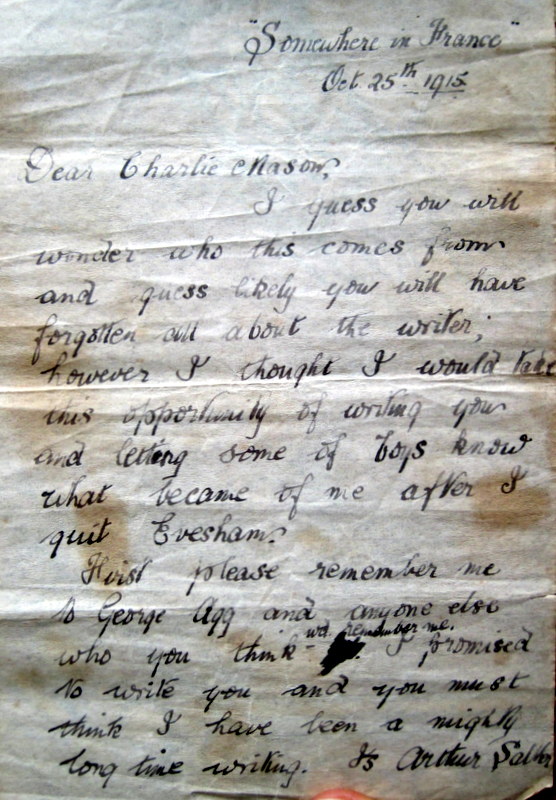 "Somewhere in France"
Oct. 25th 1915
Dear Charlie Mason,
I guess you will
wonder who this comes from
and guess likely you will have
forgotten all about the writer;
however I thought I would take
this opportunity of writing you
and letting some of boys know
what became of me after I
quit Evesham.
First please remember me
to George Agg and anyone else
wd. remember me.
who you think I promised
to write you and you must
think I have been a mighty
long time writing. Is Arthur